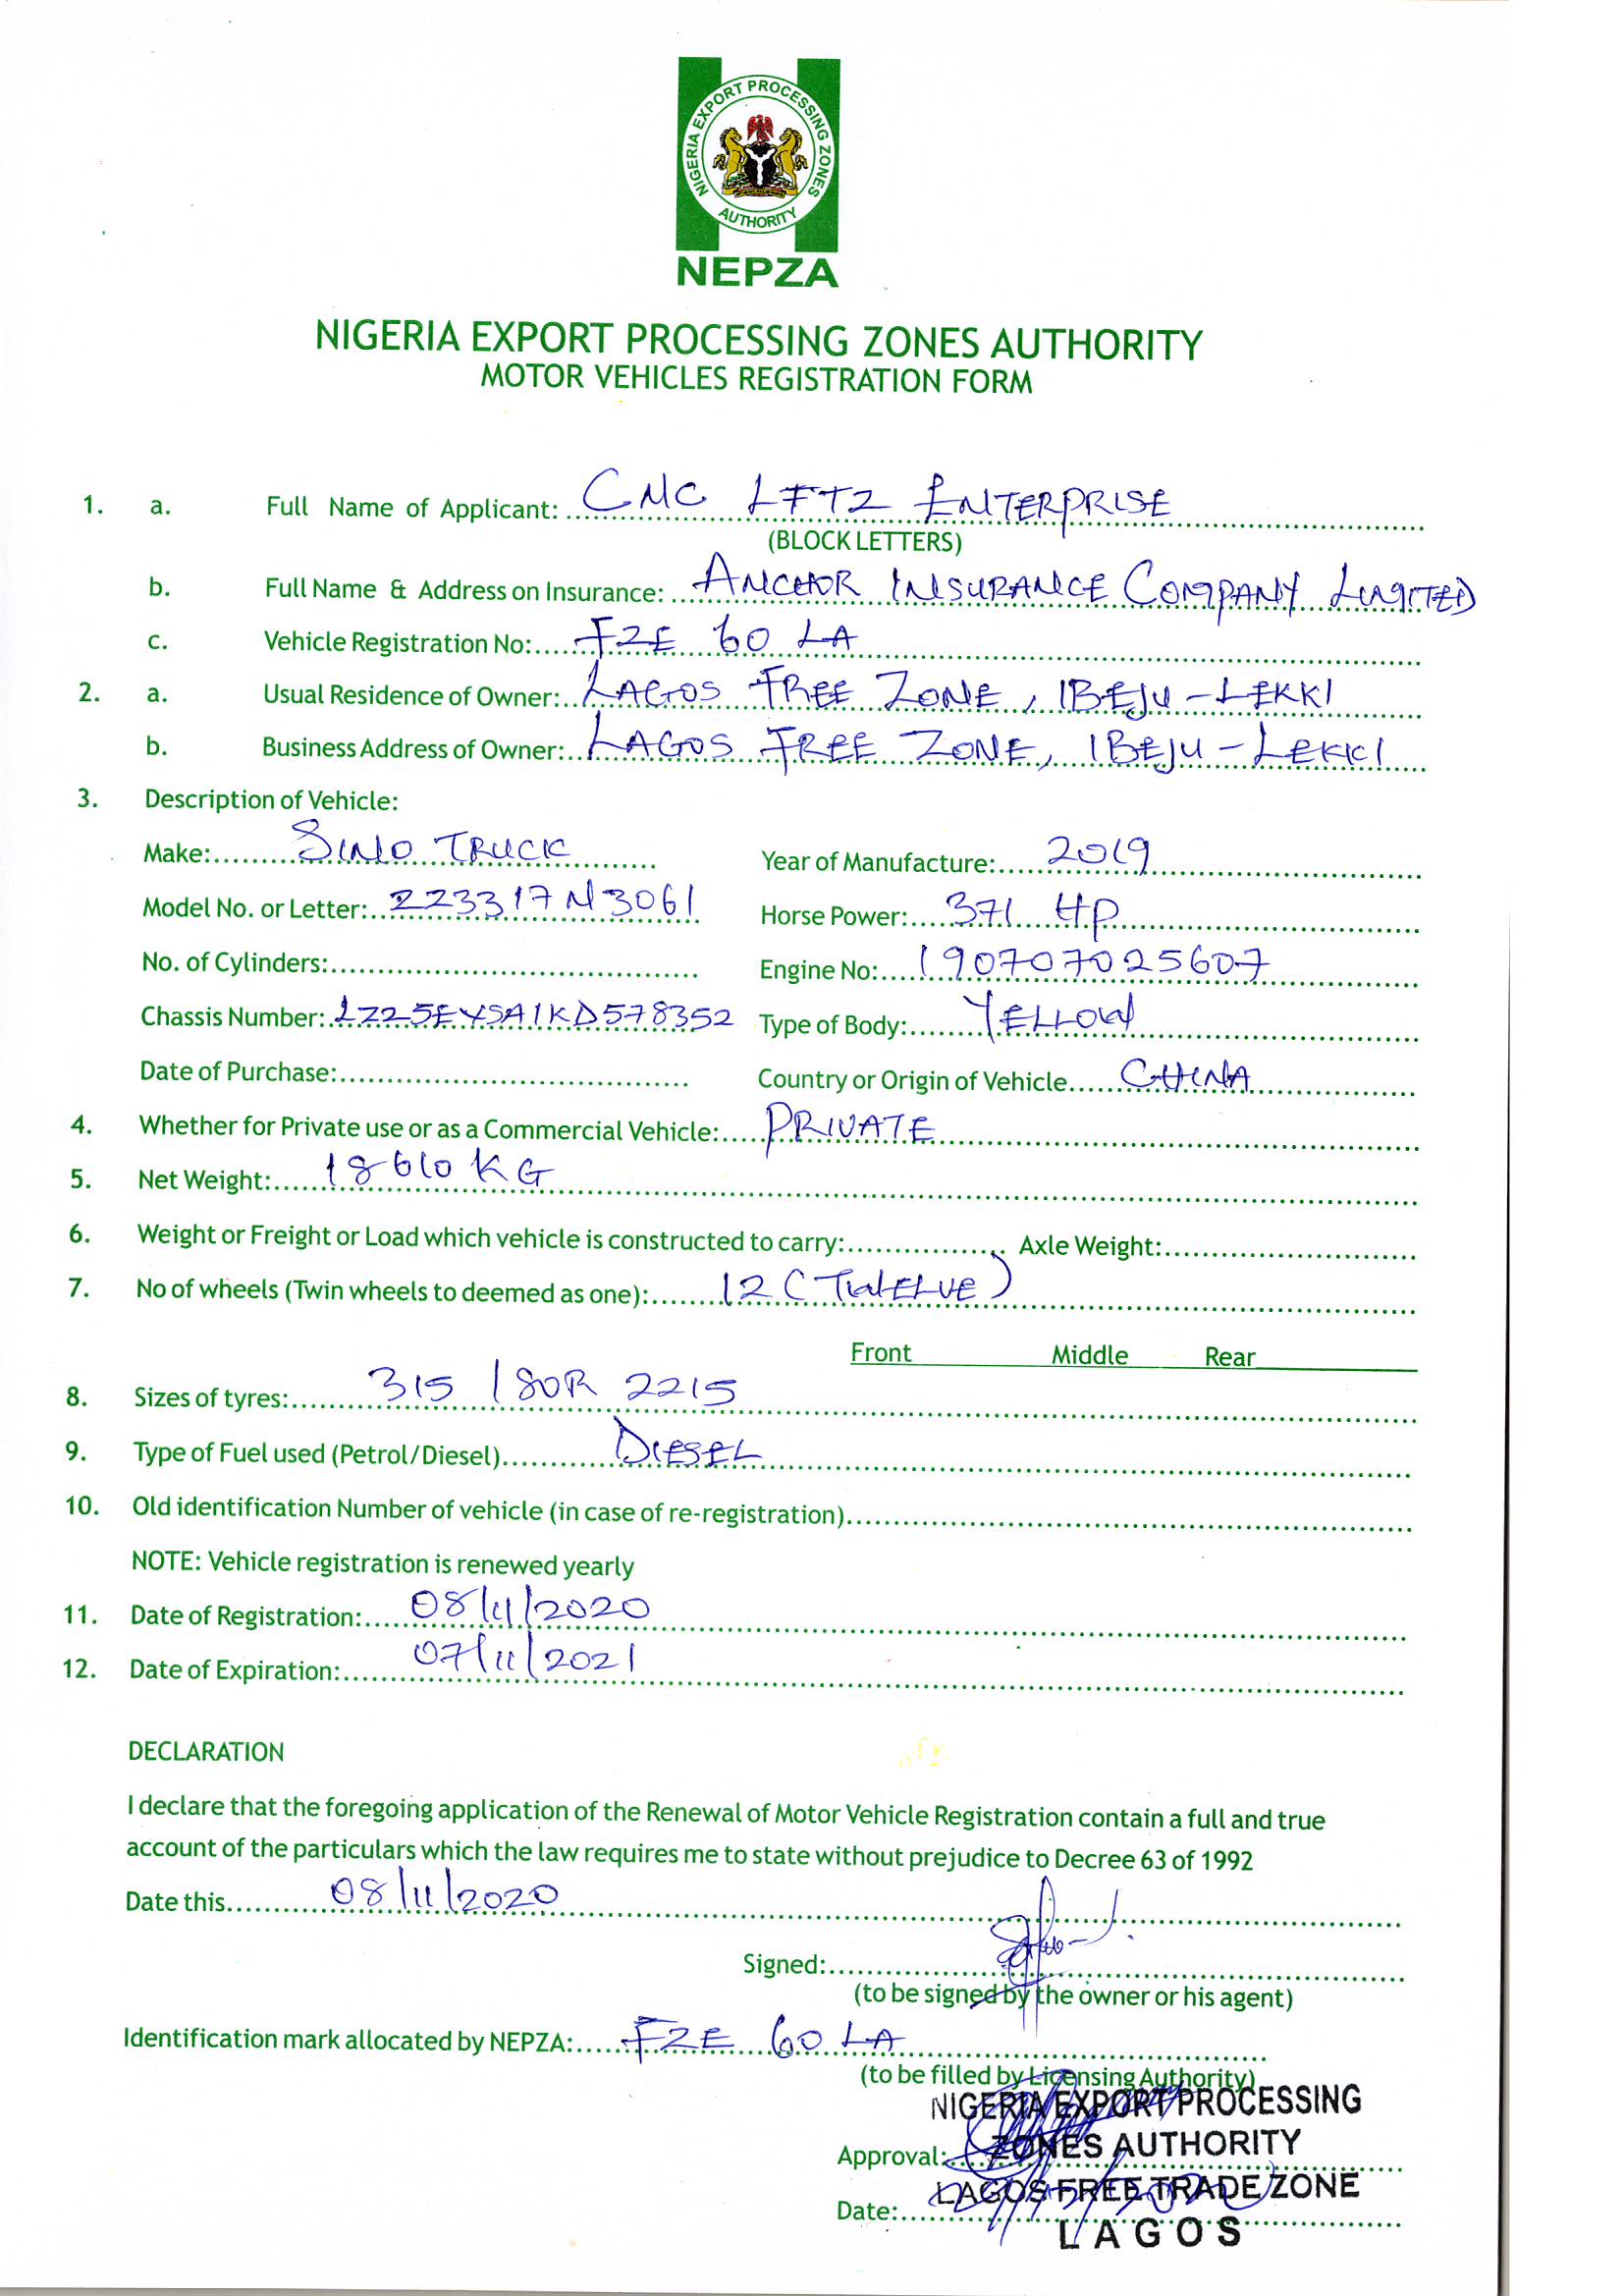 NIGERIA EXPORT PROCESSING ZONES
AUTHORITY
NEPZA
NIGERIA EXPORT PROCESSING ZONES AUTHORITY
MOTOR VEHICLES REGISTRATION FORM
1. a. Full Name of Applicant: CMC LFTZ ENTERPRISE
(BLOCK LETTERS)
b. Full Name & Address on Insurance: ANCHOR INSURANCE COMPANY LIMITED
c. Vehicle Registration No: FZE 60 LA
2. a. Usual Residence of Owner: LAGOS FREE ZONE, IBEJU-LEKKI
b. Business Address of Owner: LAGOS FREE ZONE, IBEJU-LEKKI
3. Description of Vehicle:
Make: SINO TRUCK Year of Manufacture: 2019
Model No. or Letter: ZZ3317N3061 Horse Power: 371 HP
No. of Cylinders: Engine No: 190707025607
Chassis Number: LZZ5EXSA1KD578352 Type of Body: YELLOW
Date of Purchase: Country or Origin of Vehicle CHINA
4. Whether for Private use or as a Commercial Vehicle: PRIVATE
5. Net Weight: 18610 KG
6. Weight or Freight or Load which vehicle is constructed to carry: Axle Weight:
7. No of wheels (Twin wheels to deemed as one): 12 (TWELVE)
Front Middle Rear
8. Sizes of tyres: 315/80R 2215
9. Type of Fuel used (Petrol/Diesel) DIESEL
10. Old identification Number of vehicle (in case of re-registration)
NOTE: Vehicle registration is renewed yearly
11. Date of Registration: 08/11/2020
12. Date of Expiration: 07/11/2021
DECLARATION
I declare that the foregoing application of the Renewal of Motor Vehicle Registration contain a full and true
account of the particulars which the law requires me to state without prejudice to Decree 63 of 1992
Date this 08/11/2020
Signed:
(to be signed by the owner or his agent)
Identification mark allocated by NEPZA: FZE 60 LA
(to be filled by Licensing Authority)
NIGERIA EXPORT PROCESSING
Approval: ZONES AUTHORITY
LAGOS FREE TRADE ZONE
Date:
LAGOS